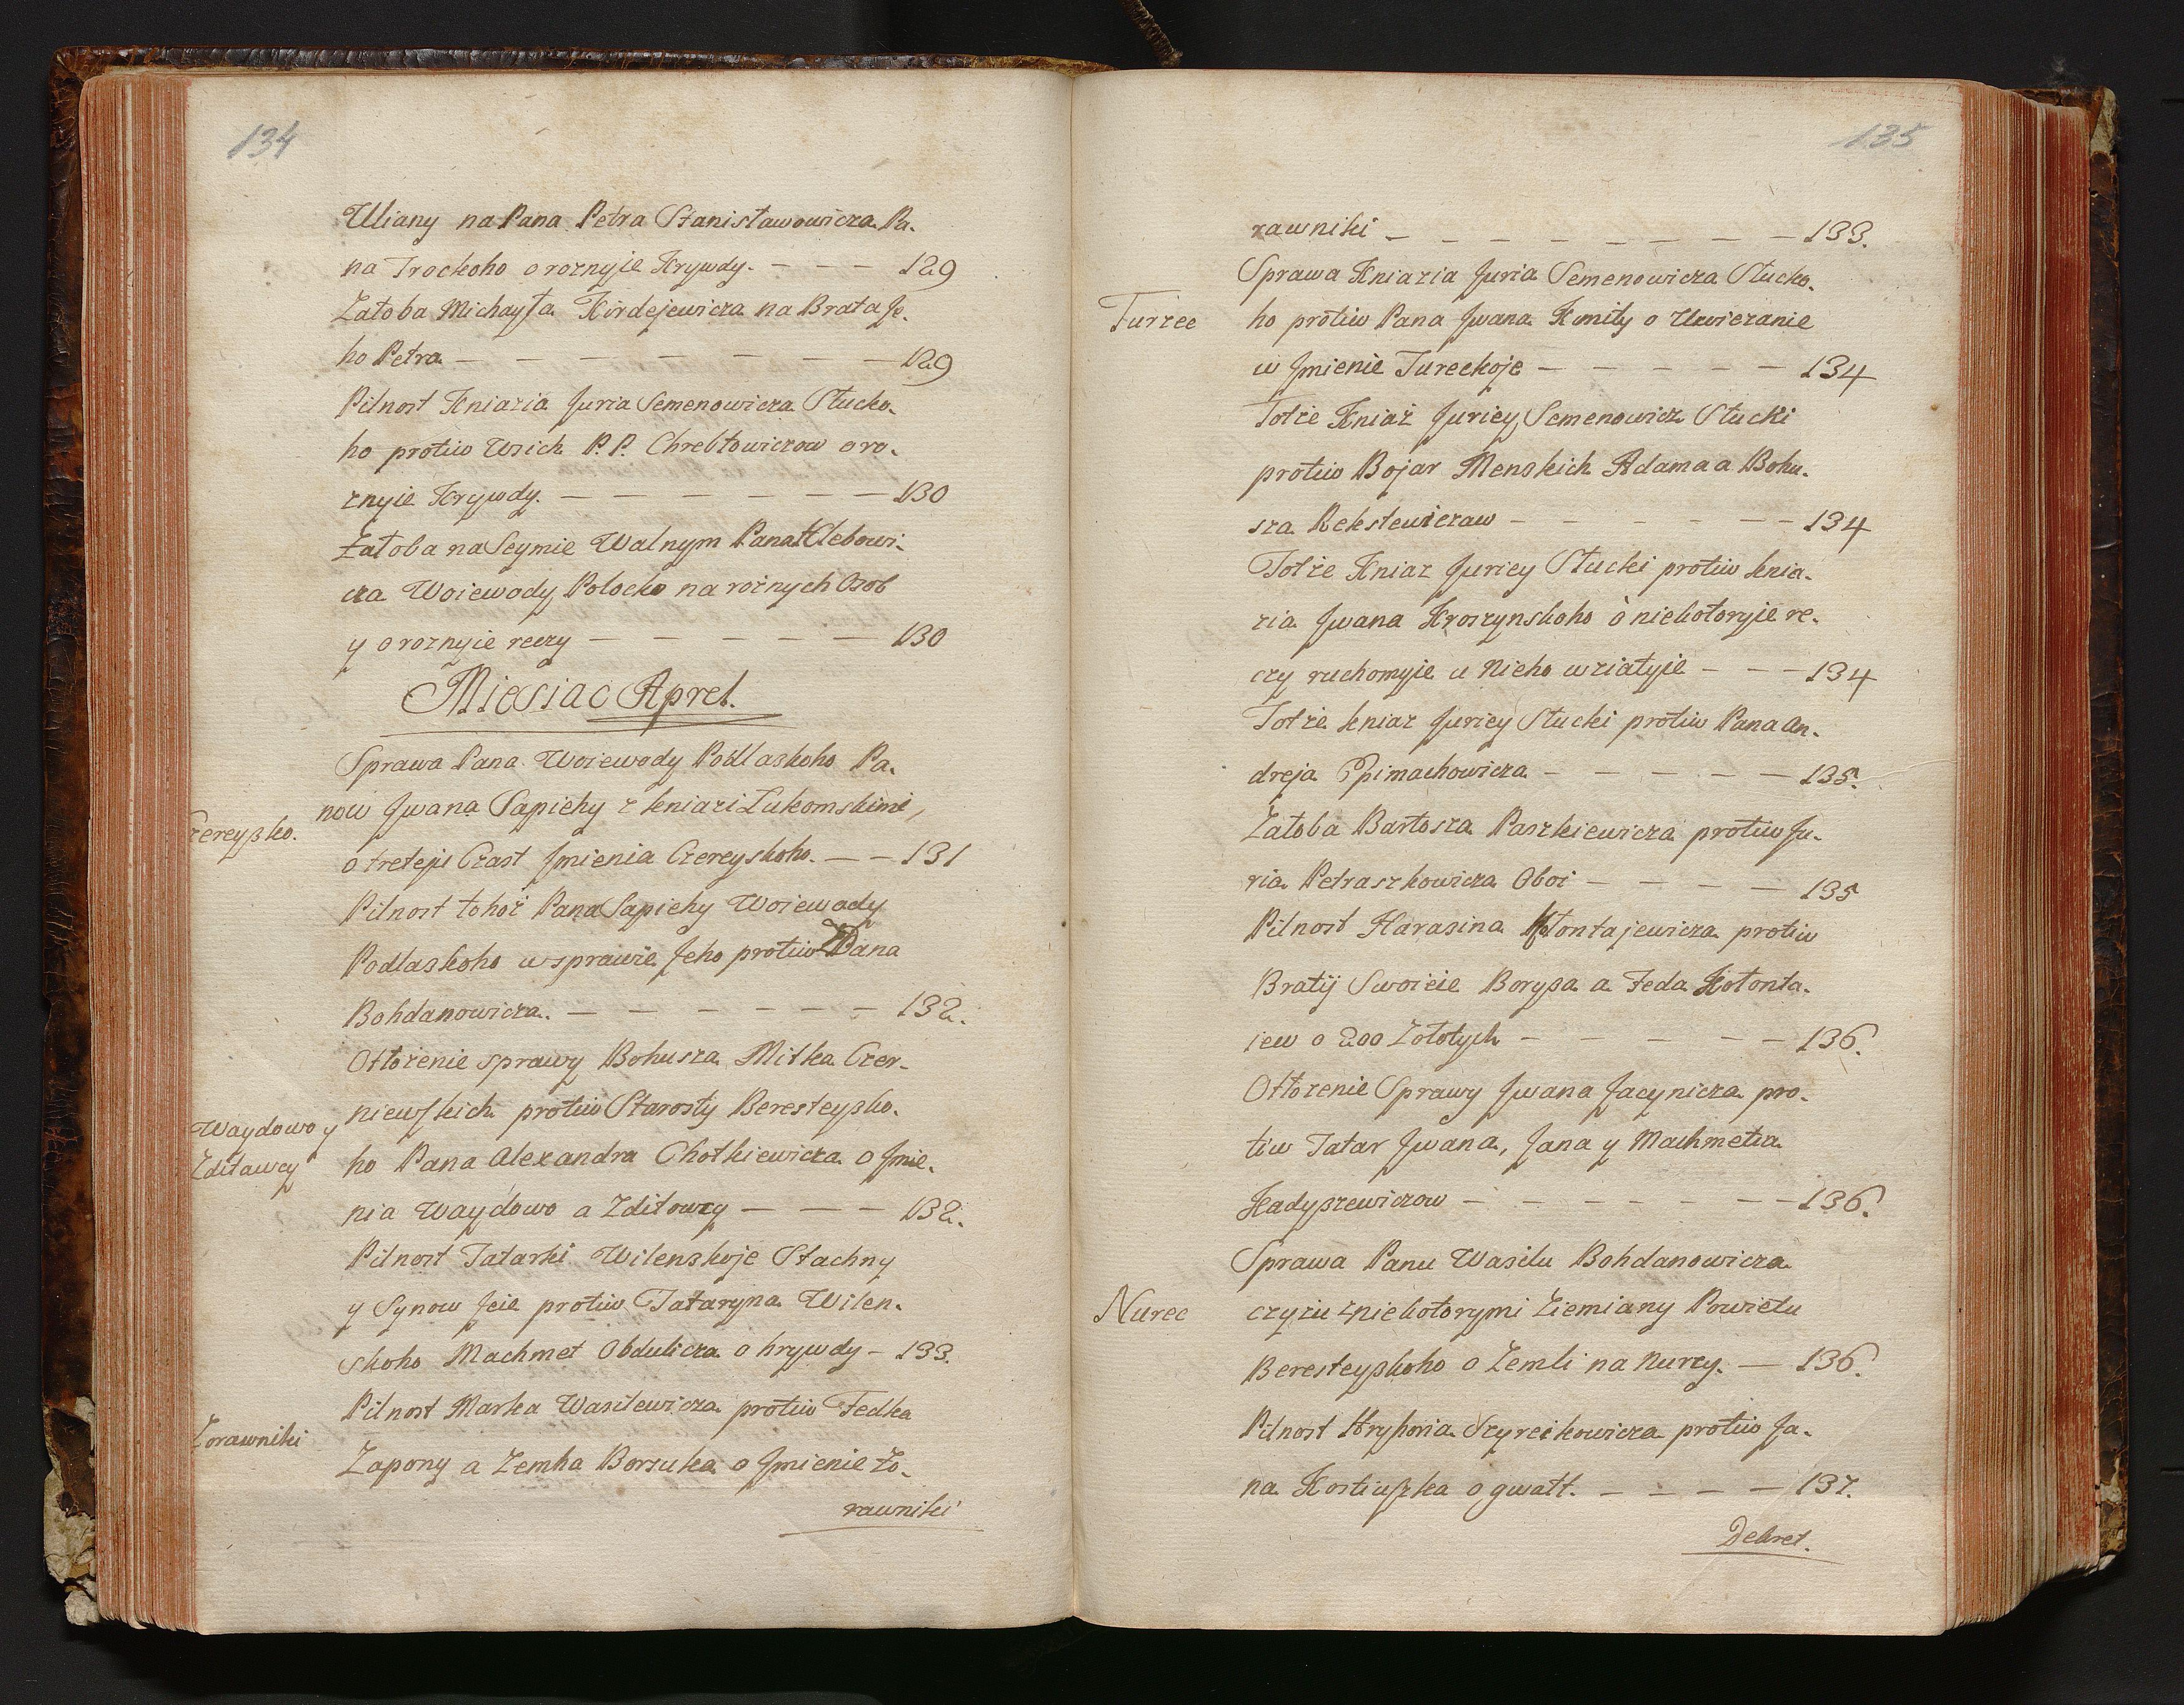 134
Uliany na Pana Petra Stanisławowicza Pa-
na Trockoho o roznyie Krywdy. — — — 129
Załoba Michayła Kirdejewicza na Brata Je-
ho Petra — — — — — — — — 129
Pilnost Kniazia Juria Semenowicza Słucko-
ho protiw Wsich P. P. Chrebtowiczow o ro-
znyie Krywdy. — — — — — — — 130
Załoba na Seymie Walnym Pana Hlebowi-
cza Woiewody Polocko na rożnych Osob
y o roznyie reczy — — — — — — 130
Miesiac Aprel.
Sprawa Pana Woiewody Podlaskoho Pa-
now Jwana Sapiehy z kniazi Łukomskimi,
Czereysko.
o treteju Czast Jmienia Czereyskoho. — — 131
Pilnost tohoż Pana Sapiehy Woiewody
Podlaskoho w sprawie Jeho protiw Pana
Bohdanowicza. — — — — — — — 132.
Otłożenie sprawy Bohusza Mitka Czer-
niewskich protiw Starosty Beresteysko-
Waydowo y
Zditawcy
ho Pana Alexandra Chotkiewicza o Jmie-
nia Waydowo a Zditowcy — — — 132.
Pilnost Tatarki Wilenskoje Stachny
y Synow Jeie protiw Tataryna Wilen-
skoho Machmet Obdulicza o krywdy — 133.
Pilnost Marka Wasilewicza protiw Fedka
Żorawniki
Zapony a Zemka Borsuka o Jmienie Żo-
rawniki
135
rawniki — — — — — — — — 133.
Sprawa Kniazia Juria Semenowicza Słucko-
Turzec
ho protiw Pana Jwana Kmity o Uwiezanie
w Jmienie Tureckoje — — — — — 134
Totże Kniaź Juriey Semenowicz Słucki
protiw Bojar Menskich Adama a Bohu-
sza Rekstewiczaw — — — — — — 134
Totże Kniaz Juriey Słucki protiw knia-
zia Jwana Kroszynskoho o niekotoryie re-
czy ruchomyie u Nieho wziatyie — — — 134
Totże kniaz Juriey Słucki protiw Pana An-
dreja Epimachowicza — — — — — 135.
Załoba Bartosza Paszkiewicza protiw Ju-
ria Petraszkowicza Oboi — — — — 135
Pilnost Harasina Kłontajewicza protiw
Bratij Swoieie Borysa a Feda Kołonta-
iew o 200 Zołotych — — — — — — 136.
Otłozenie Sprawy Jwana Jacynicza pro-
tiw Tatar Jwana, Jana y Machmetia
Kadyszewiczow — — — — — — — 136.
Sprawa Panu Wasilu Bohdanowicza
Nurec
czyżu z niekotorymi Ziemiany Powietu
Beresteyskoho o Zemli na Nurcy. — 136.
Pilnost Hryhoria Szyreikowicza protiw Ja-
na Kostiuszka o gwałt. — — — — 137.
Dekret.